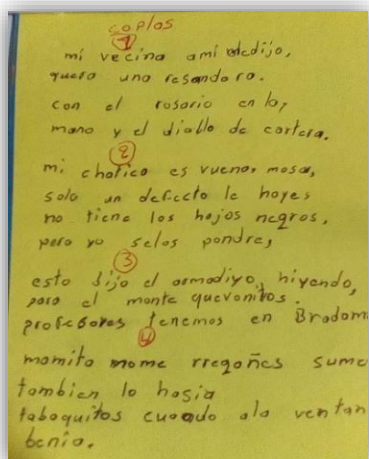 coplas
1
mi vecina ami medijo,
quera una resandora.
con el rosario en la,
mano y el diablo de cartera.
2
mi chatica es vuena, mosa,
solo un defecto le hayes
no tiene los hojos negros,
pero yo selos pondre,
3
esto dijo el armadiyo, hiyendo,
para el monte quevonitos.
profesores tenemos en Bradam
4
mamita mome rregañes sume
tambien lo hasia
tabaquitos cuando ala ventan
benia.